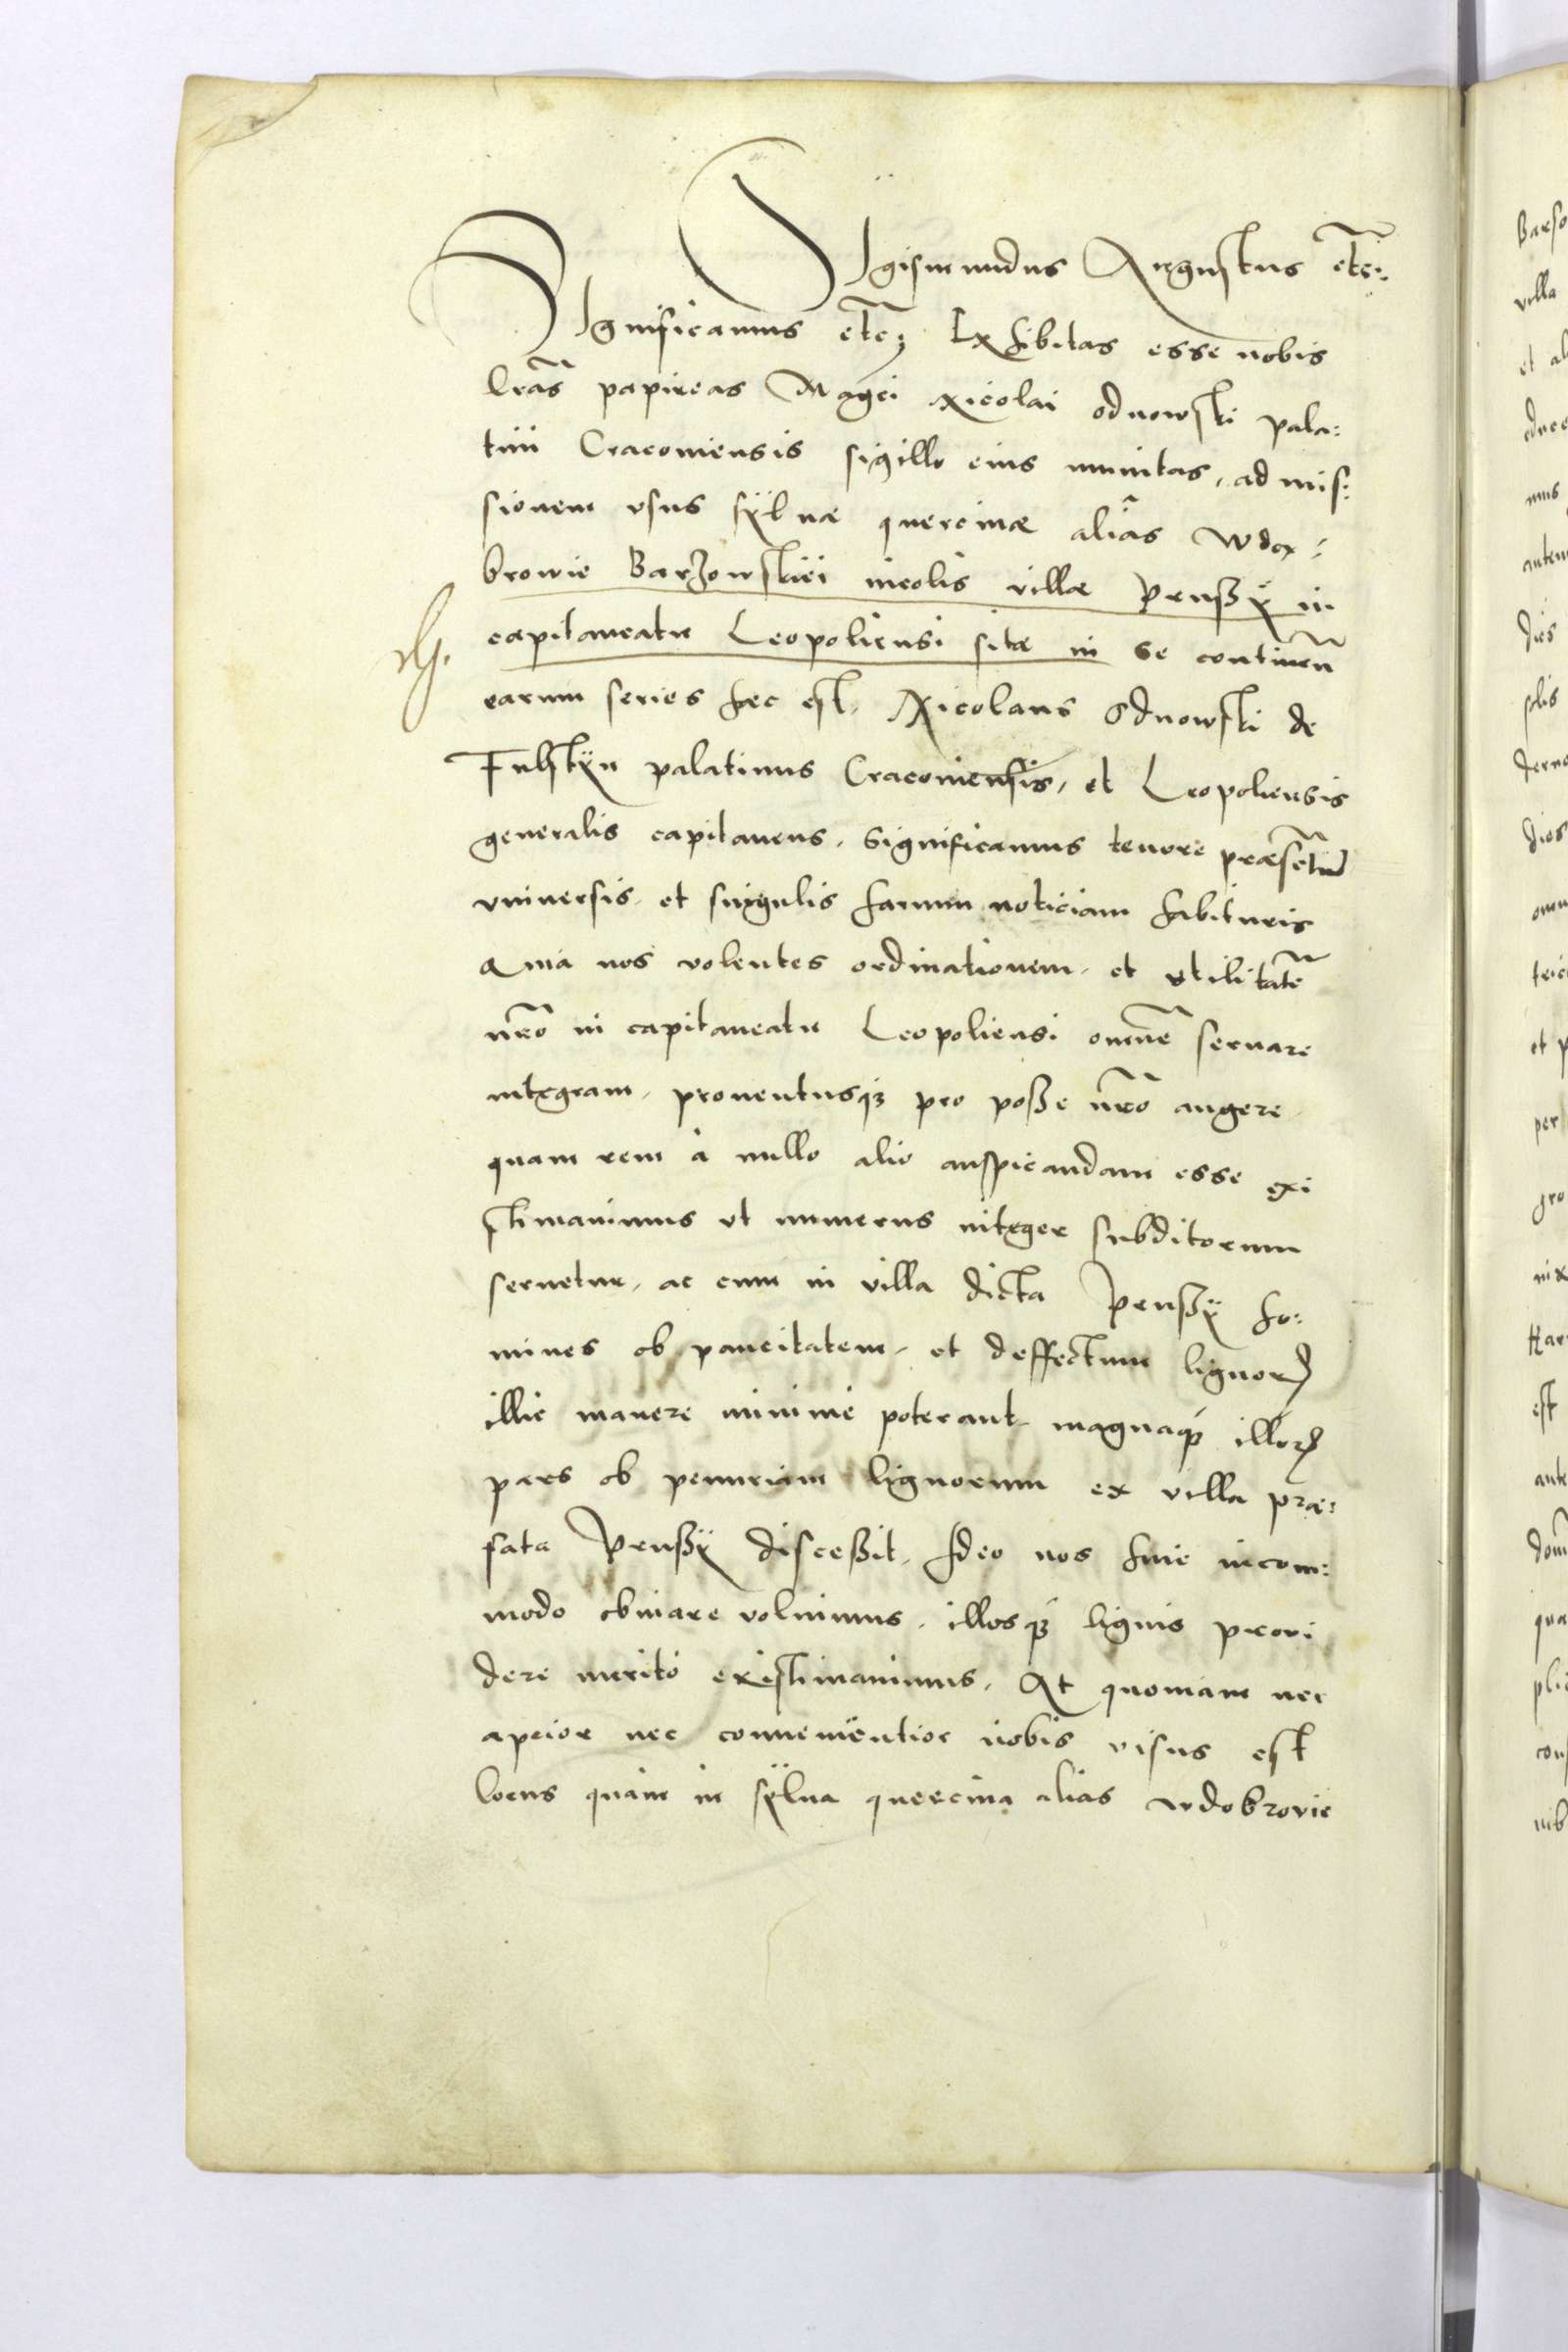 Sigismundus Augustus etc:
Significamus etc; Exhibitas esse nobis
lr̃as papireas Magci Nicolai odnowski pala:
tini Cracoviensis sigillo eius munitas, ad mis:
sionem usus sÿluæ quercinæ aliàs wdą:
browie Barzowskiei incolis villæ Prussÿ in
capitaneatu Leopoliensi sitæ in se continen̄
earum series hæc est, Nicolaus Odnowski de
Fulstÿn palatinus Cracoviensis, et Leopoliensis
generalis capitaneus, Significamus tenore præsentiū
vniuersis, et singulis harum noticiam habituris
Quia nos volentes ordinationem, et vtilitatē
nr̃o in capitaneatu Leopoliensi omnē seruare
integram, prouentusq; pro posse nr̃o augere,
quam rem à nullo alio auspicandam esse exi
stimauimus vt numerus integer subditorum
seruetur, ac cum in villa dicta Prussÿ ho:
mines ob paucitatem, et deffectum lignorꝝ
illic manere minimè poterant magnaq; illorꝝ
pars ob penuriam lignorum ex villa præ:
fata Prussÿ discessit, Ideo nos huic incom:
modo obuiare voluimus, illosq; lignis proui
dere meritò existimauimus, At quoniam nec
apcior nec conuenientior nobis visus est
locus quàm in sÿlua quercina alias wdobrovie
Barso
villa
et al
autem
dies
solis
dies
et p
per
gro
Har
est
ante
dom
qua